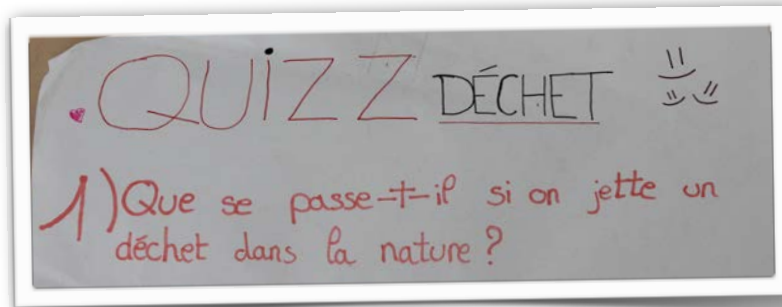 QUIZZ DÉCHET
1) Que se passe-t-il si on jette un
déchet dans la nature ?